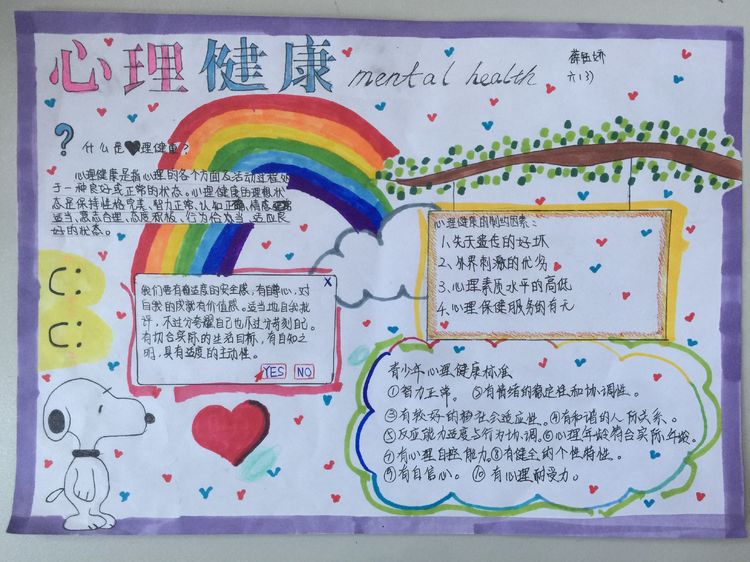 心理健康 mental health
六(3)
? 什么是心理健康?
心理健康是指心理的各个方面及活动过程处
于一种良好或正常的状态。心理健康的理想状
态是保持性格完美、智力正常、认知正确、情感
适当、意志合理、态度积极、行为恰当、适应良
好的状态。
我们要有适度的安全感,有自尊心,对
自我的成就有价值感。适当地自我批
评,不过分夸耀自己也不过分苛刻自己。
有切合实际的生活目标,有自知之
明,具有适度的主动性。
X
YES NO
心理健康的制约因素:
1、先天遗传的好坏
2、外界刺激的优劣
3、心理素质水平的高低
4、心理保健服务的有无
青少年心理健康标准
①智力正常。②有情绪的稳定性和协调性。
③有较好的社会适应性。④有和谐的人际关系。
⑤反应能力适度与行为协调。⑥心理年龄符合实际年龄。
⑦有心理自控能力⑧有健全的个性特性。
⑨有自信心。⑩有心理耐受力。